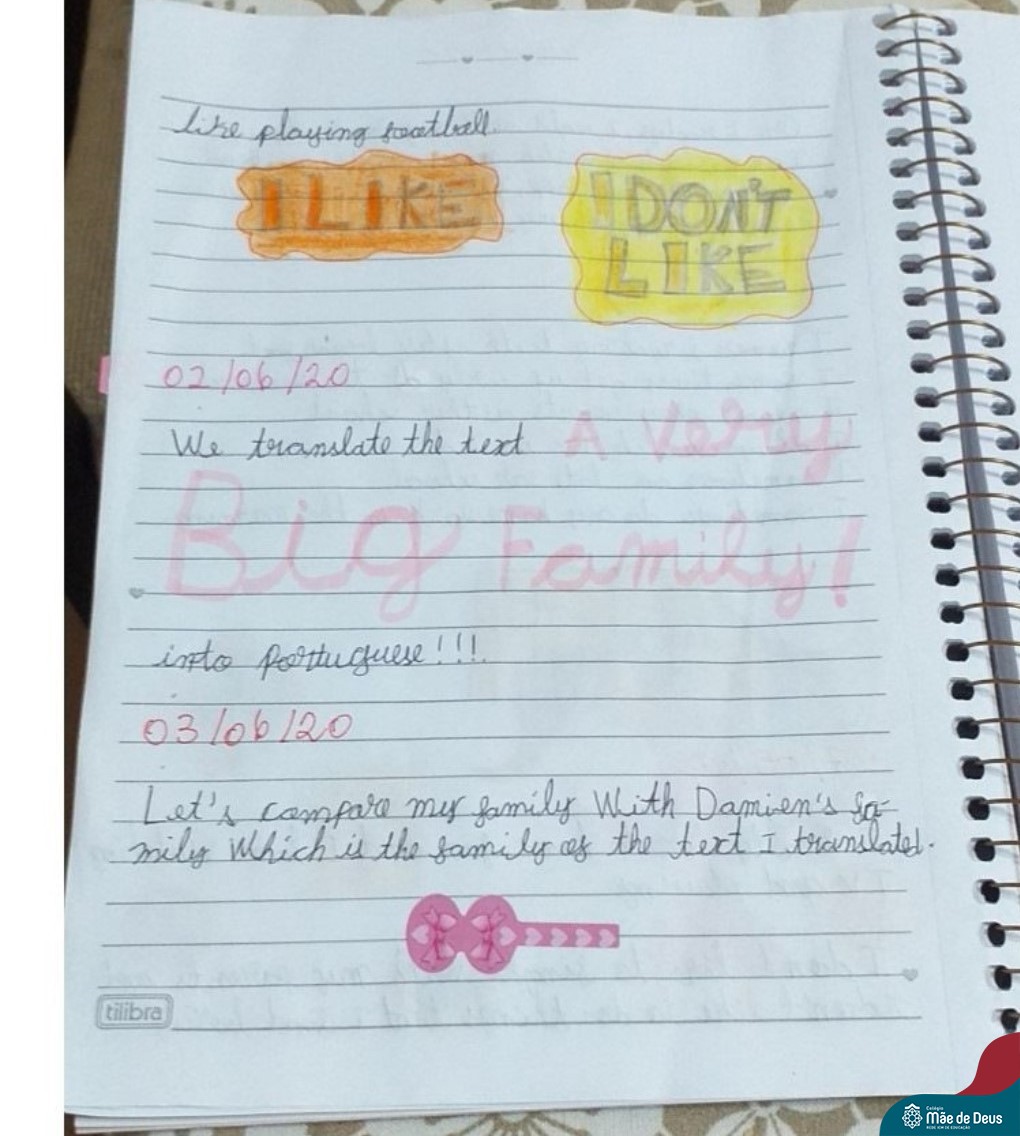 like playing football.
I LIKE
I DON'T
LIKE
02/06/20
We translate the text A Very
Big Family!
into portuguese!!!
03/06/20
Let's compare my family With Damien's fa-
mily Which is the family of the text I translated.
tilibra
Colégio
Mãe de Deus
REDE ICM DE EDUCAÇÃO